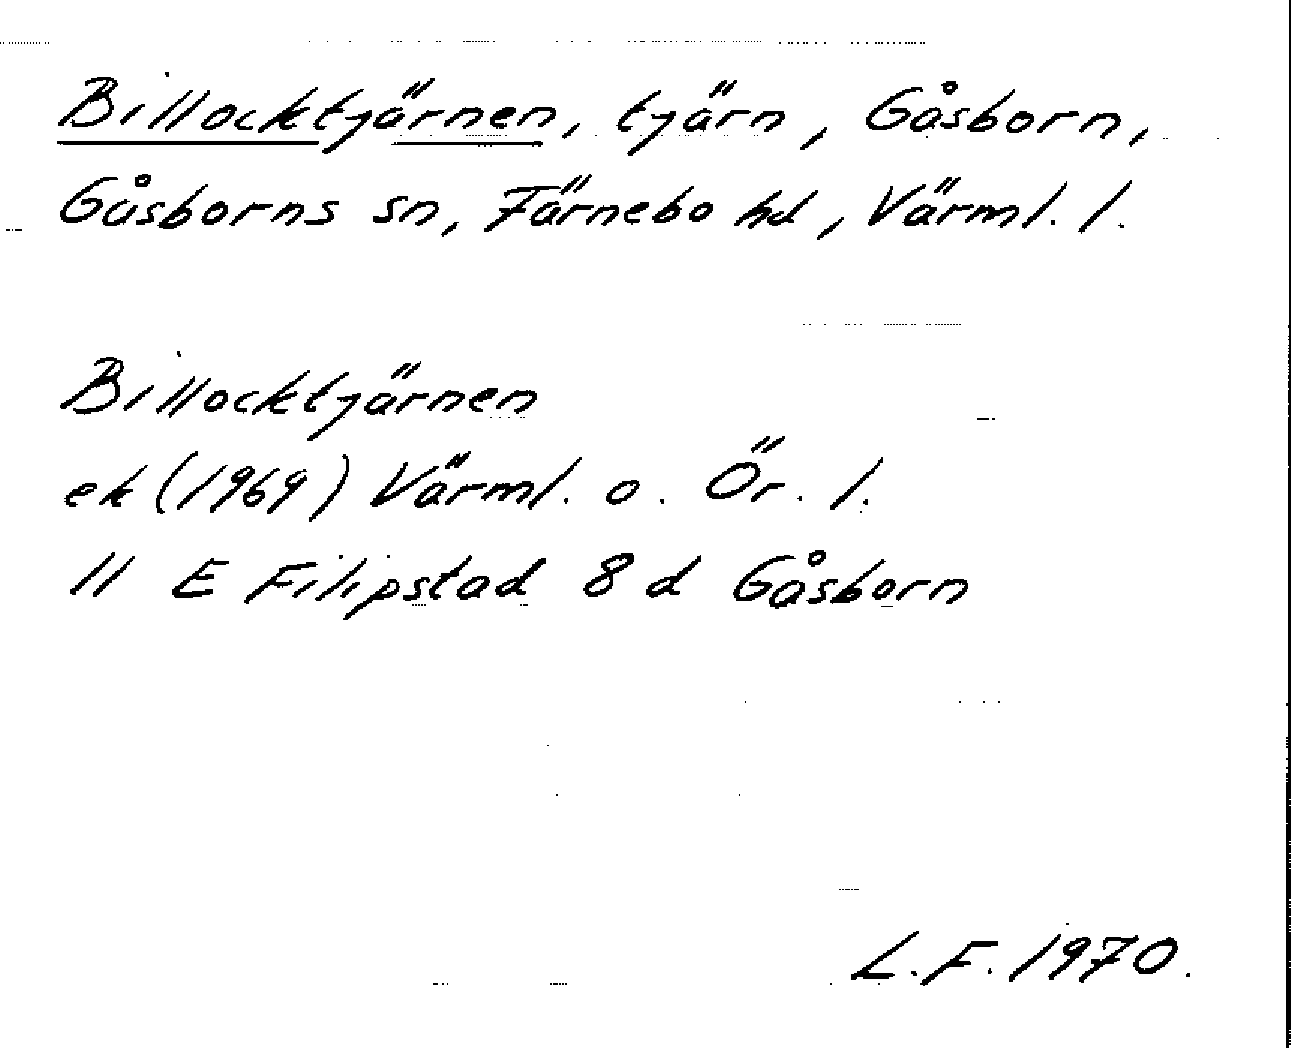 Billocktjärnen, tjärn, Gåsborn,
Gåsborns sn, Färnebo hd, Värml. l.
Billocktjärnen
ek (1969) Värml. o. Ör. l.
11 E Filipstad 8 d Gåsborn
L.F. 1970.